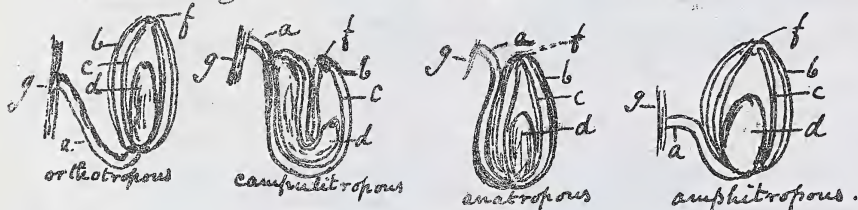 b f
c
g d
a
orthotropous
a f
g b
c
d
campulitropous
a f
g b
c
d
anatropous
f
g b
c
a d
amphitropous.